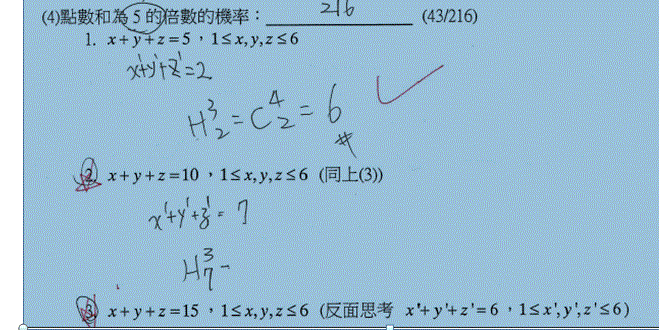 (4)點數和為 5 的倍數的機率：216 (43/216)
1. x+y+z=5，1≤x,y,z≤6
x'+y'+z'=2
H³₂=C⁴₂=6
#
2. x+y+z=10，1≤x,y,z≤6 (同上(3))
x'+y'+z'=7
H³₇-
3. x+y+z=15，1≤x,y,z≤6 (反面思考 x'+y'+z'=6，1≤x',y',z'≤6)